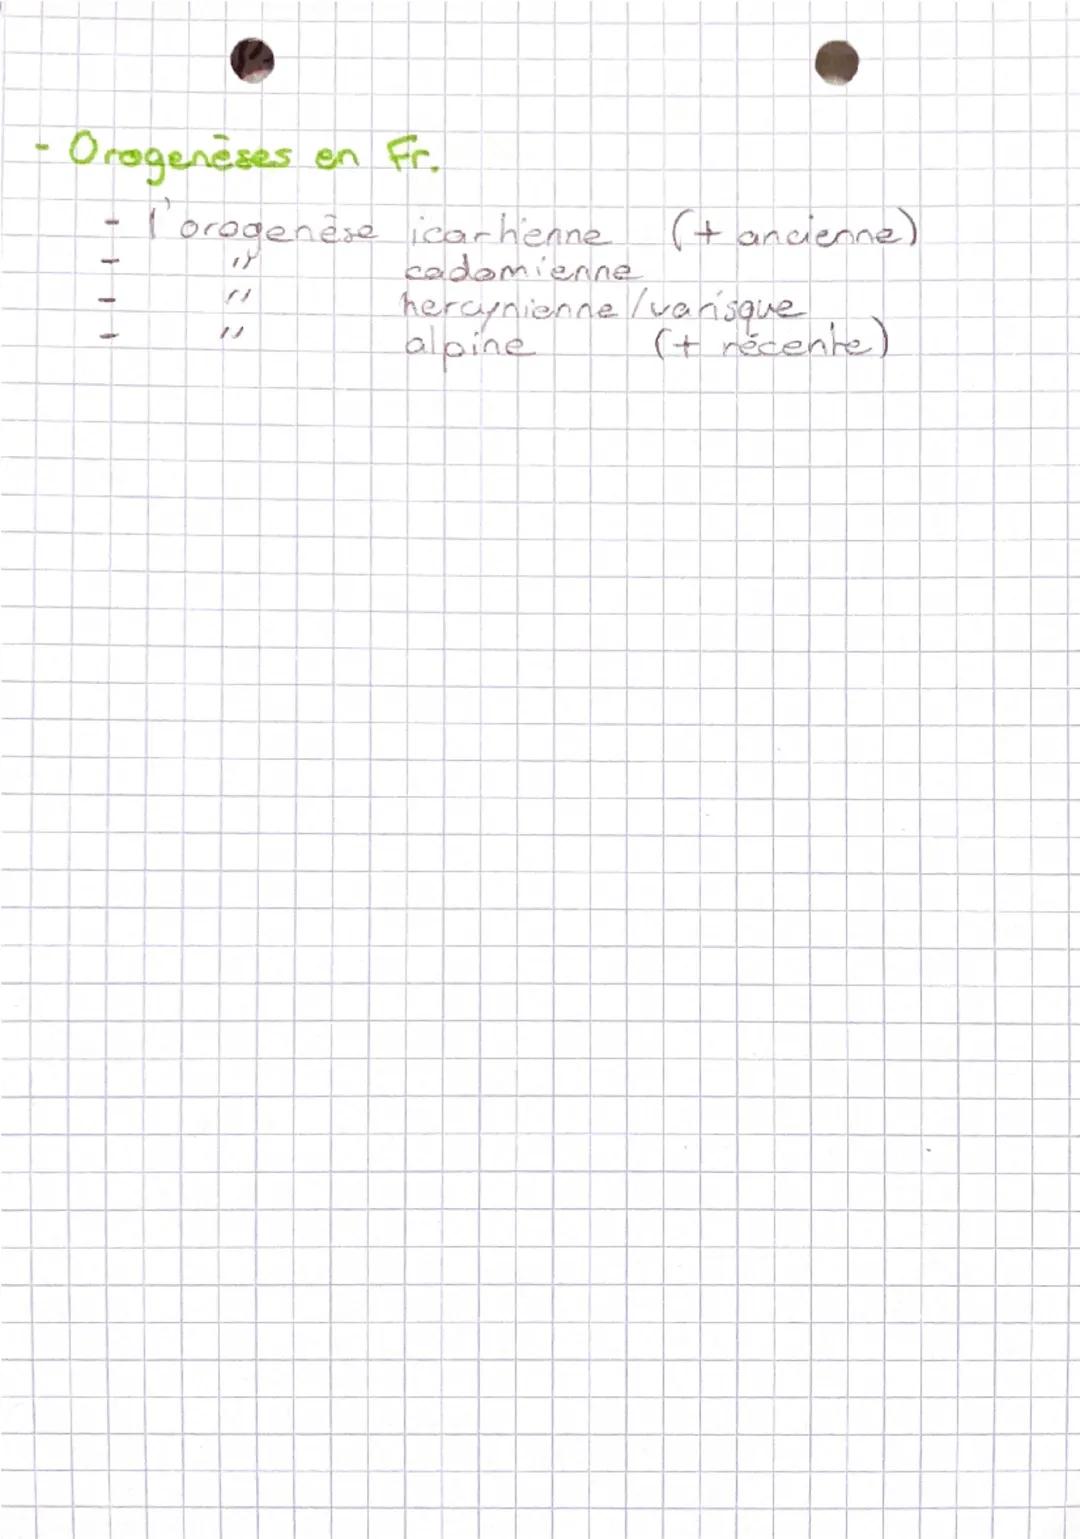 - Orogenèses en Fr.
- l'orogenèse icarhienne (+ ancienne)
- " cadomienne
- " hercynienne/varisque
- " alpine (+ récente)